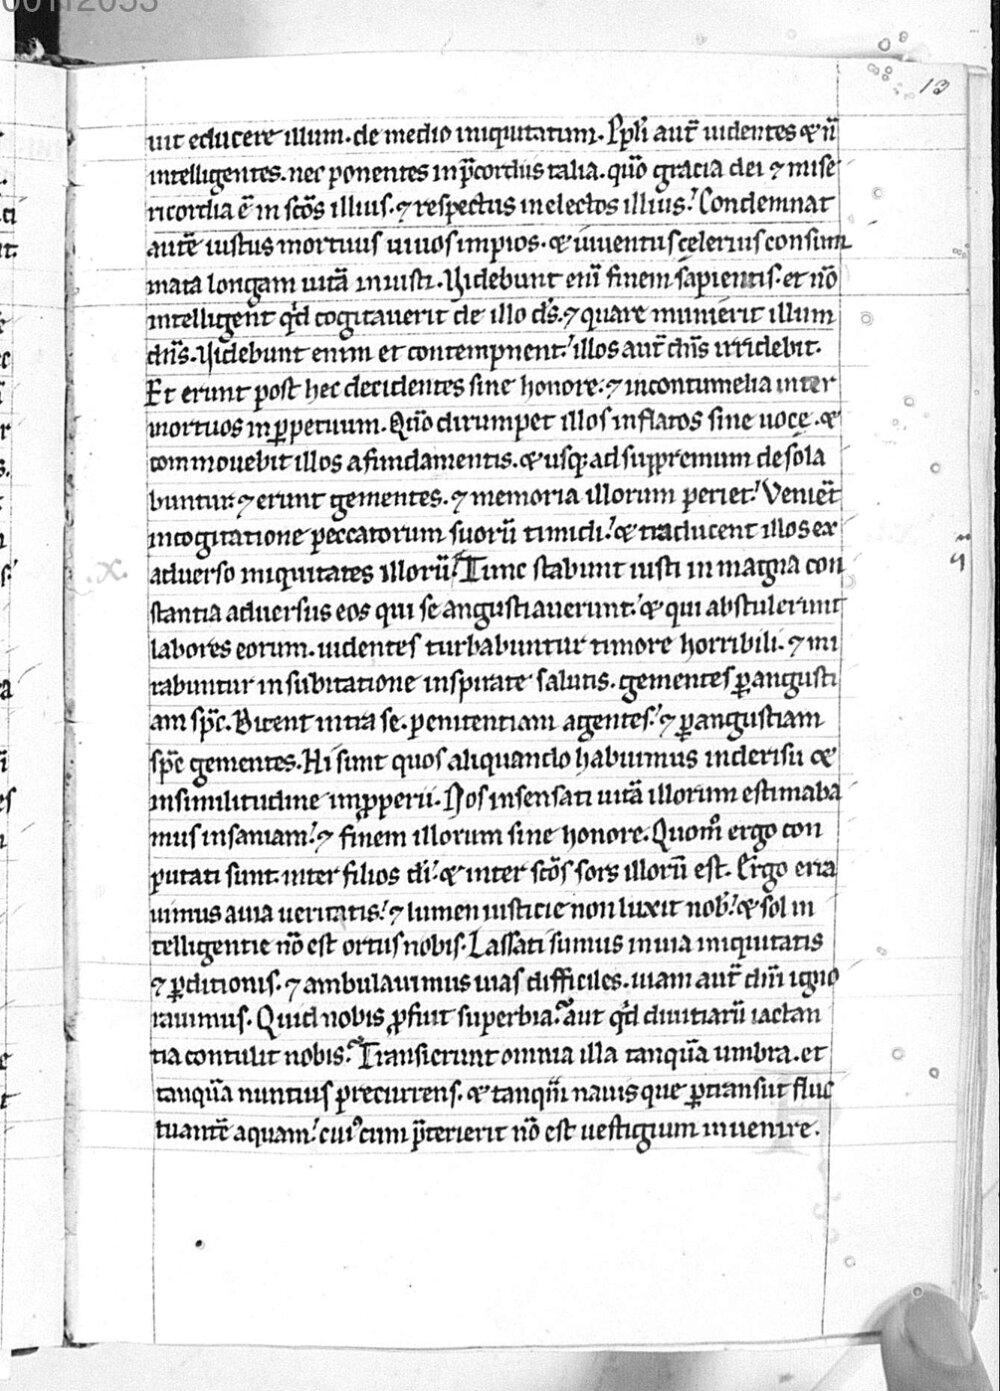 00112053
13
uit educere illum. de medio iniquitatum. Ppl̄i aut̄ uidentes & ñ
intelligentes. nec ponentes in p̄cordiis talia. qm̄o gracia dei ⁊ mise
ricordia ē in sc̄os illius. ⁊ respectus in electos illius. Condemnat
autē iustus mortuus uiuos impios. & iuuentus celerius consum
mata longam uitā iniusti. Uidebunt enī finem sapientis. et nō
intelligent qd̄ cogitauerit de illo d̄s. ⁊ quare munierit illum
dn̄s. Uidebunt enim et contempnent. illos aut̄ dn̄s irridebit.
Et erunt post hec decidentes sine honore. ⁊ in contumelia inter
mortuos in ꝑpetuum. Qm̄o dirumpet illos inflatos sine uoce. &
commouebit illos a fundamentis. & usq; ad suppremum desola
buntur. ⁊ erunt gementes. ⁊ memoria illorum periet. Venient̄
in cogitatione peccatorum suorū timidi. & traducent illos ex
x.
aduerso iniquitates illorū. Tunc stabunt iusti in magna con
stantia aduersus eos qui se angustiauerunt. & qui abstulerunt
labores eorum. uidentes turbabuntur timore horribili. ⁊ mi
rabuntur in subitatione insperate salutis. gementes p̄ angusti
am sp̄c. Dicent intra se. penitentiam agentes. ⁊ p̄ angustiam
sp̄c gementes. Hi sunt quos aliquando habuimus in derisu &
in similitudine inꝓperii. Nos insensati uitā illorum estimaba
mus insaniam. ⁊ finem illorum sine honore. Quom̊ ergo con
putati sunt inter filios di̅. & inter sc̄os sors illorū est. Ergo erra
uimus a uia ueritatis. ⁊ lumen iusticie non luxit nob̄. & sol in
telligentie nō est ortus nobis. Lassati sumus in uia iniquitatis
⁊ ꝑditionis. ⁊ ambulauimus uias difficiles. uiam aut̄ dn̄i igno
rauimus. Quid nobis ꝓfuit superbia. aut qd̄ diuitiarū iactan
tia contulit nobis. Transierunt omnia illa tanquā umbra. et
tanquā nuntius precurrens. & tanqm̄ nauis que ꝑtransiit fluc
tuantē aquam. cui᾿ cum p̄terierit nō est uestigium inuenire.